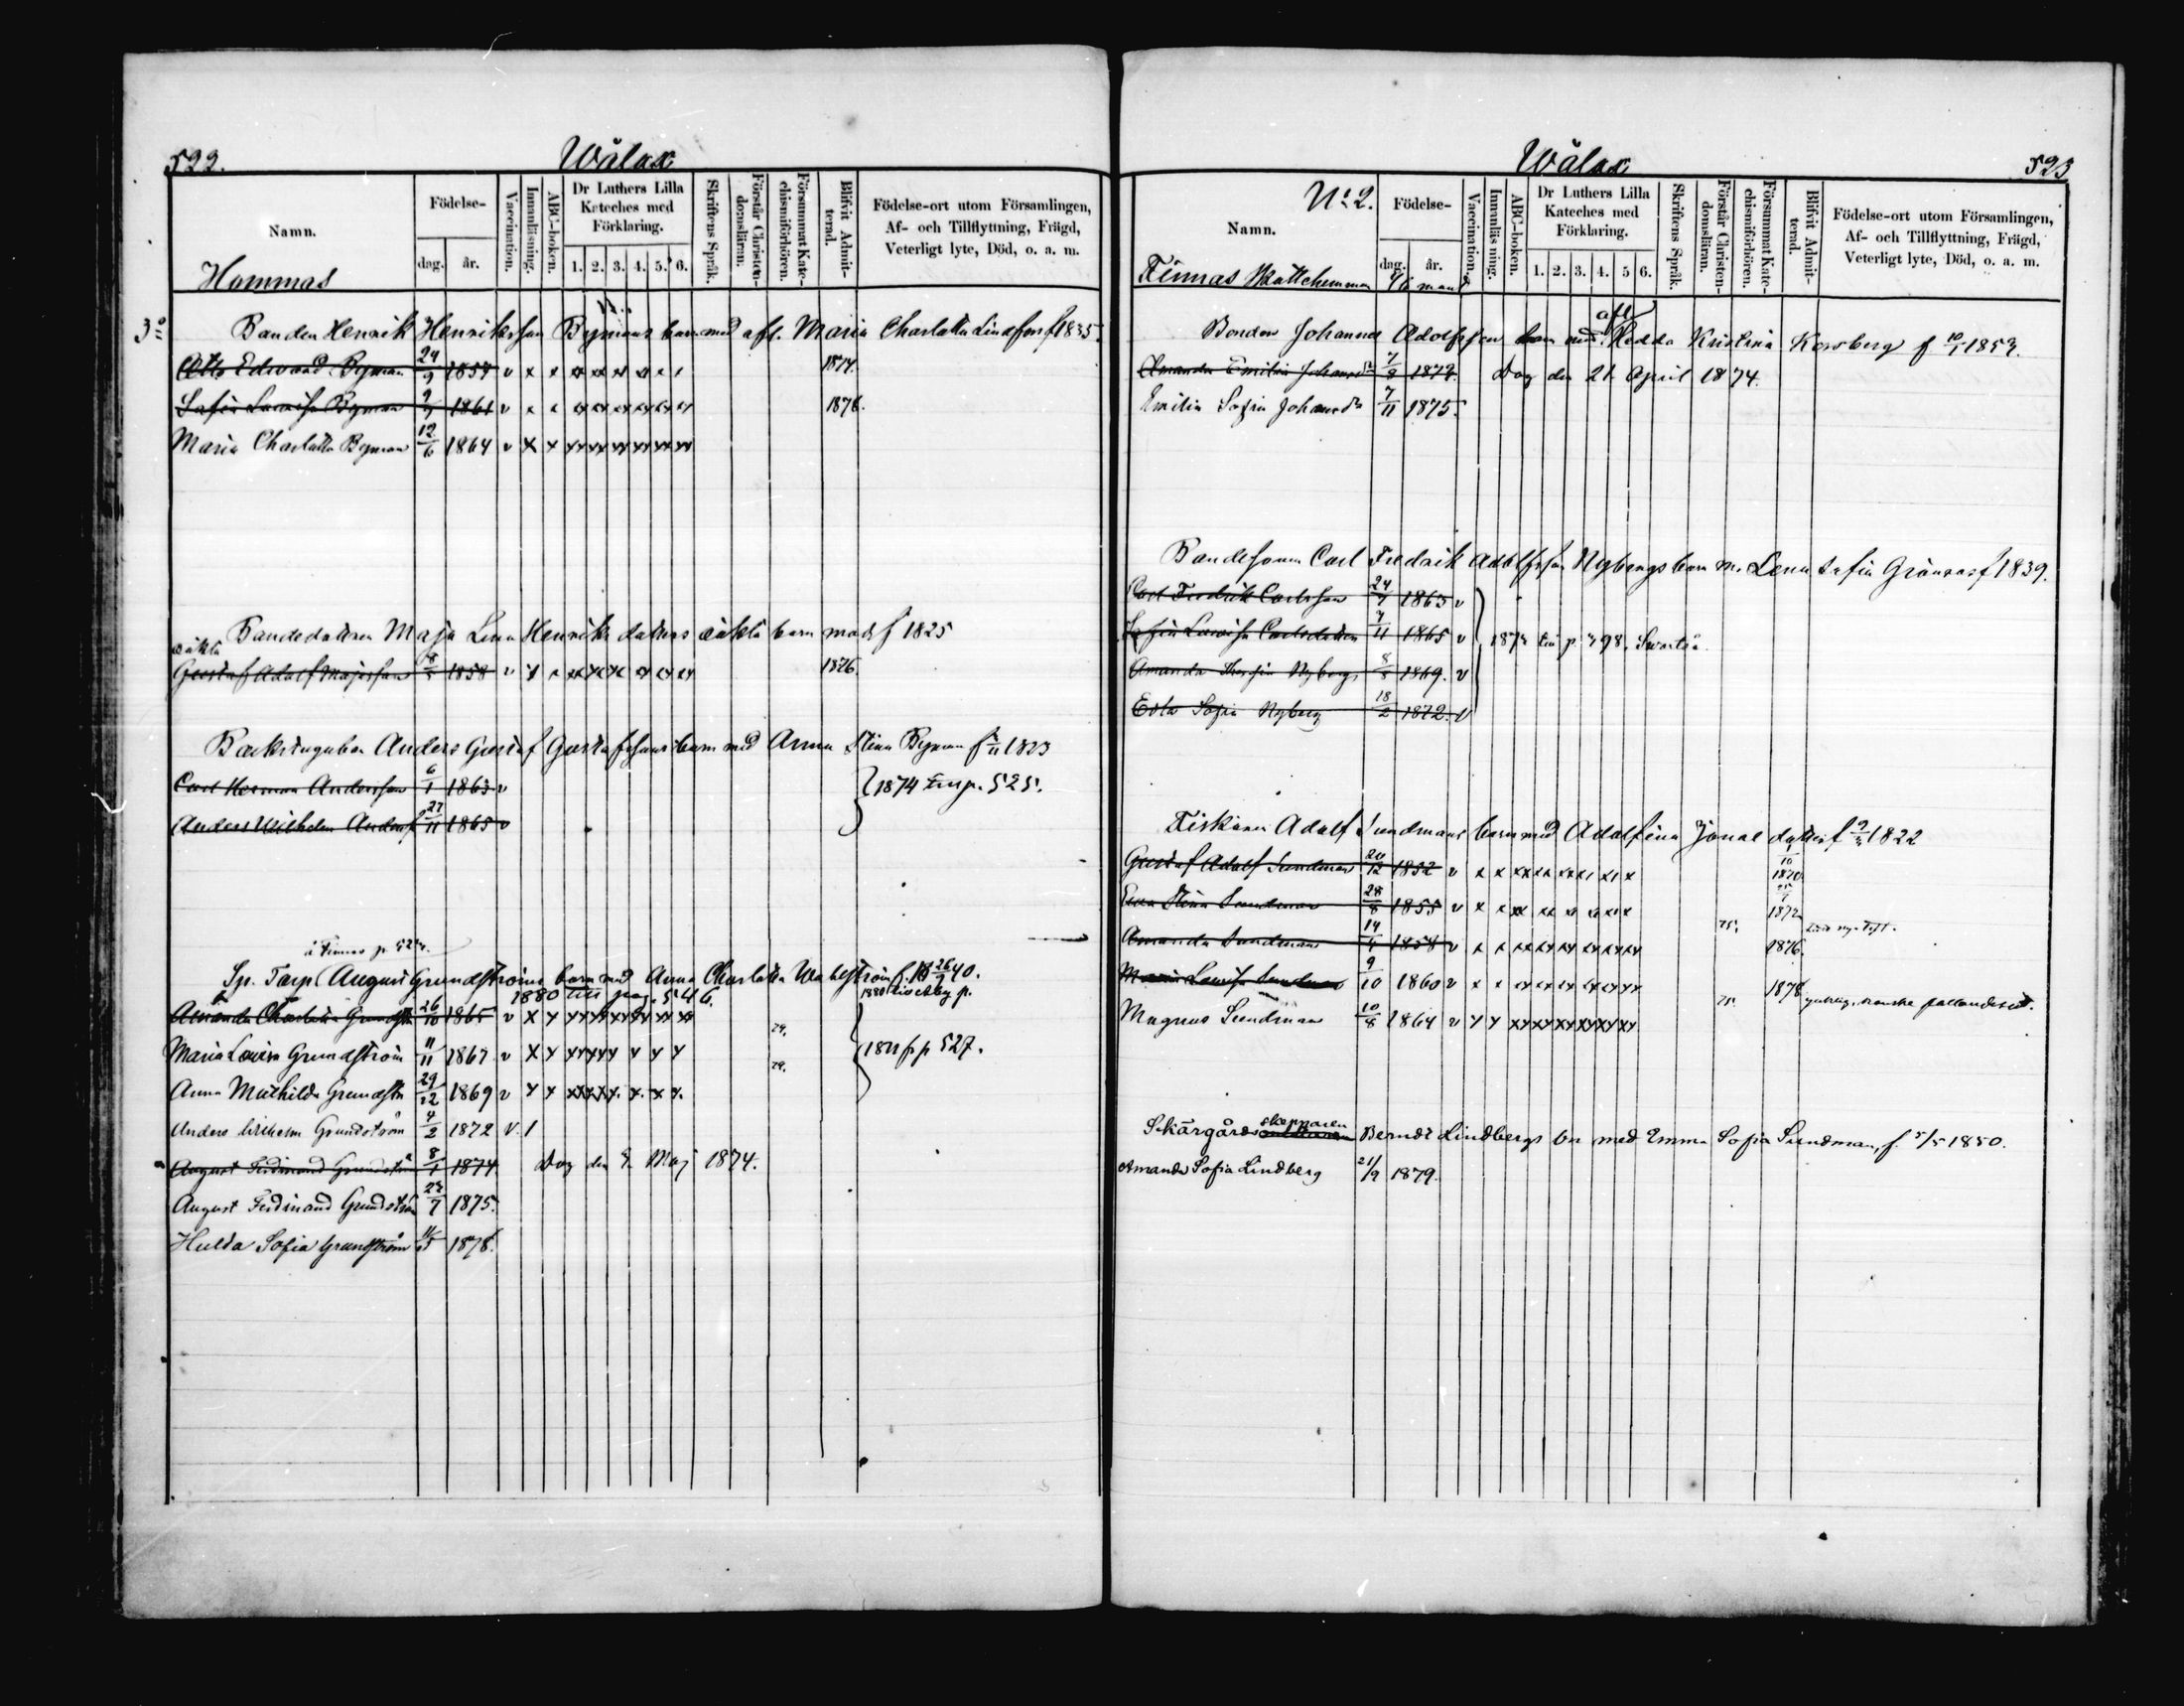 522.
Wålax
Namn.
Födelse-
dag. år.
Vaccination.
Innanläsning.
ABC-boken.
Dr Luthers Lilla Kateches med Förklaring.
1. 2. 3. 4. 5. 6.
Skriftens Språk.
Förstår Christendomsläran.
Försummat Katechismiförhören.
Blifvit Admitterad.
Födelse-ort utom Församlingen, Af- och Tillflyttning, Frägd, Veterligt lyte, Död, o. a. m.
Hommas
Bonden Henrik Henriksson Bymans barn med afl. Maria Charlotta f 1835.
Otto Edward Byman 24/9 1857 v x x 1874.
Sofia Lovisa Byman 1861 v x x 1878.
Maria Charlotta Byman 12/6 1864 v x x
Bondedottren Maja Lena Henriksdotters oäkta barn mod. f 1825
oäkta
Gustaf Adolf Majasson 1858 v 1876.
Anders Gustaf Gustafssons barn med Anna Stina Byman f 1823
Carl Herman Andersson 6/1 1863 v
1874 till p. 525.
Anders Wilhelm Anders 27/11 1865 v
å Finnas p. 524.
Sp. Torp. August Grundströms barn med Anna Charlotta Wahlström f. 18 26/7 40.
1880 till pag. 546.
Amanda Charlotta Grundstr 26/10 1865 v x x
Maria Lovisa Grundström 11/11 1867 v x x 79.
fr p 527.
Anna Mathilda Grundstr 29/12 1869 v x x 79.
Anders Wilhelm Grundström 4/2 1872 v. 1
August Ferdinand Grundström 8/1 1874. Dog den 8. Maj 1874.
August Ferdinand Grundström 23/7 1875.
Hulda Sofia Grundström 1878.
Wålax
523
No 2.
Namn.
Födelse-
dag. år.
Vaccination.
Innanläsning.
ABC-boken.
Dr Luthers Lilla Kateches med Förklaring.
1. 2. 3. 4. 5 6.
Skriftens Språk.
Förstår Christendomsläran.
Försummat Katechismiförhören.
Blifvit Admitterad.
Födelse-ort utom Församlingen, Af- och Tillflyttning, Frägd, Veterligt lyte, Död, o. a. m.
Finnas Skattehemman
Bonden Johannes Adolfsson barn med afl Hedda Kristina Korsberg f 10/1 1853.
Amanda Emilia Johansdr 7/8 1873. Dog den 21 April 1874.
Emilia Sofia Johansdr 7/11 1875.
Bondesonen Carl Fredrik Adolfsson Nybergs barn m. Lena Sofia Grönroos f 1839.
Carl Fredrik Carlsson 24/7 1863 v
Sofia Lovisa Carlsdotter 7/11 1865 v
till p. 798. Svartså
Amanda Nyberg 1869. v
Edla Sofia Nyberg 18/2 1872. v
Fiskaren Adolf Sundmans barn med Adolfina Jonasdotter f 1822
Gustaf Adolf Sundman 20/12 1852 v x x 1870
Eva Stina Sundman 28/8 1855 v x x 1872
Amanda Sundman 14/4 1858 v x x 75. 1876.
Maria Lovisa Sundman 9/10 1860 v x x 1878
Magnus Sundman 10/8 1864 v 75.
Skärgårdsskepparen Berndt Lindbergs bn med Emma Sofia Sundman, f. 5/5 1850.
Amanda Sofia Lindberg 21/9 1879.